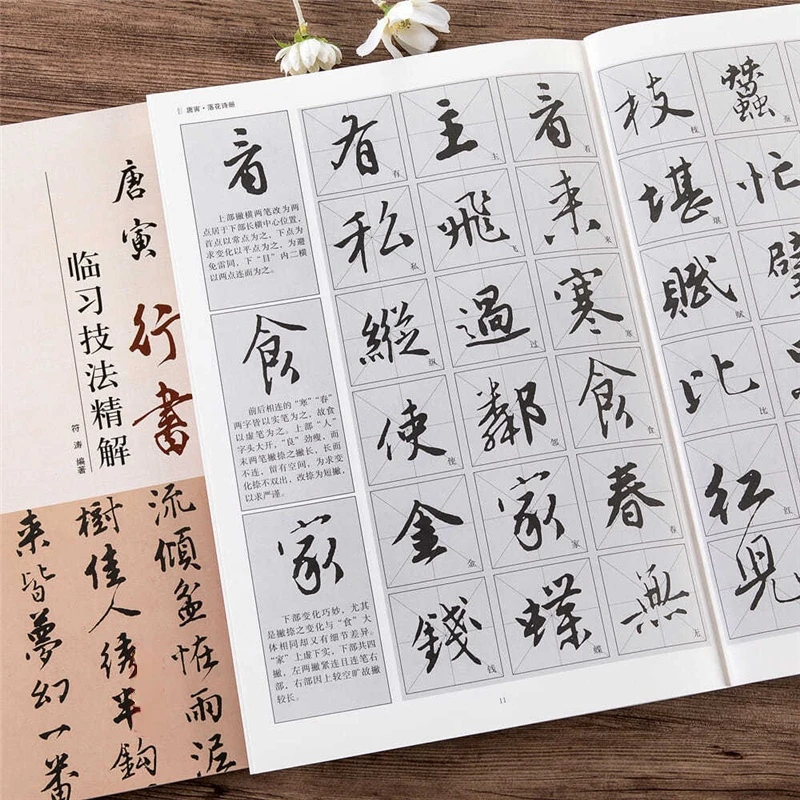 唐寅
行書
临习技法精解
符涛 编著
流傾盆恠雨泥
樹佳人綉半鈎
来皆夢幻一番
唐寅·落花诗册
看
上部撇横两笔改为两
点居于下部长横中心位置，
首点以常点为之，下点为
求变化以平点为之，为避
免雷同，下“目”内二横
以两点连而为之。
食
前后相连的“寒”“春”
两字皆以实笔为之，故食
以虚笔为之。上部“人”
字头大开，“良”劲瘦，而
末两笔撇捺之撇长，长而
不连，留有空间，为求变
化捺不双出，改捺为短撇，
以求严谨。
家
下部变化巧妙，尤其
是撇捺之变化与“食”大
体相同却又有细节差异。
“家”上虚下实，下部共四
撇，左两撇紧连且连笔右
部，右部因上较空旷故撇
较长。
有 有 主 主 看 看
私 私 飛 飞 来 来
縱 纵 過 过 寒 寒
使 使 鄰 邻 食 食
金 金 家 家 春 春
錢 钱 蝶 蝶 無 无
11
枝 枝 蠶
堪 堪 忙
賦 赋
比 比
紅 红
兒